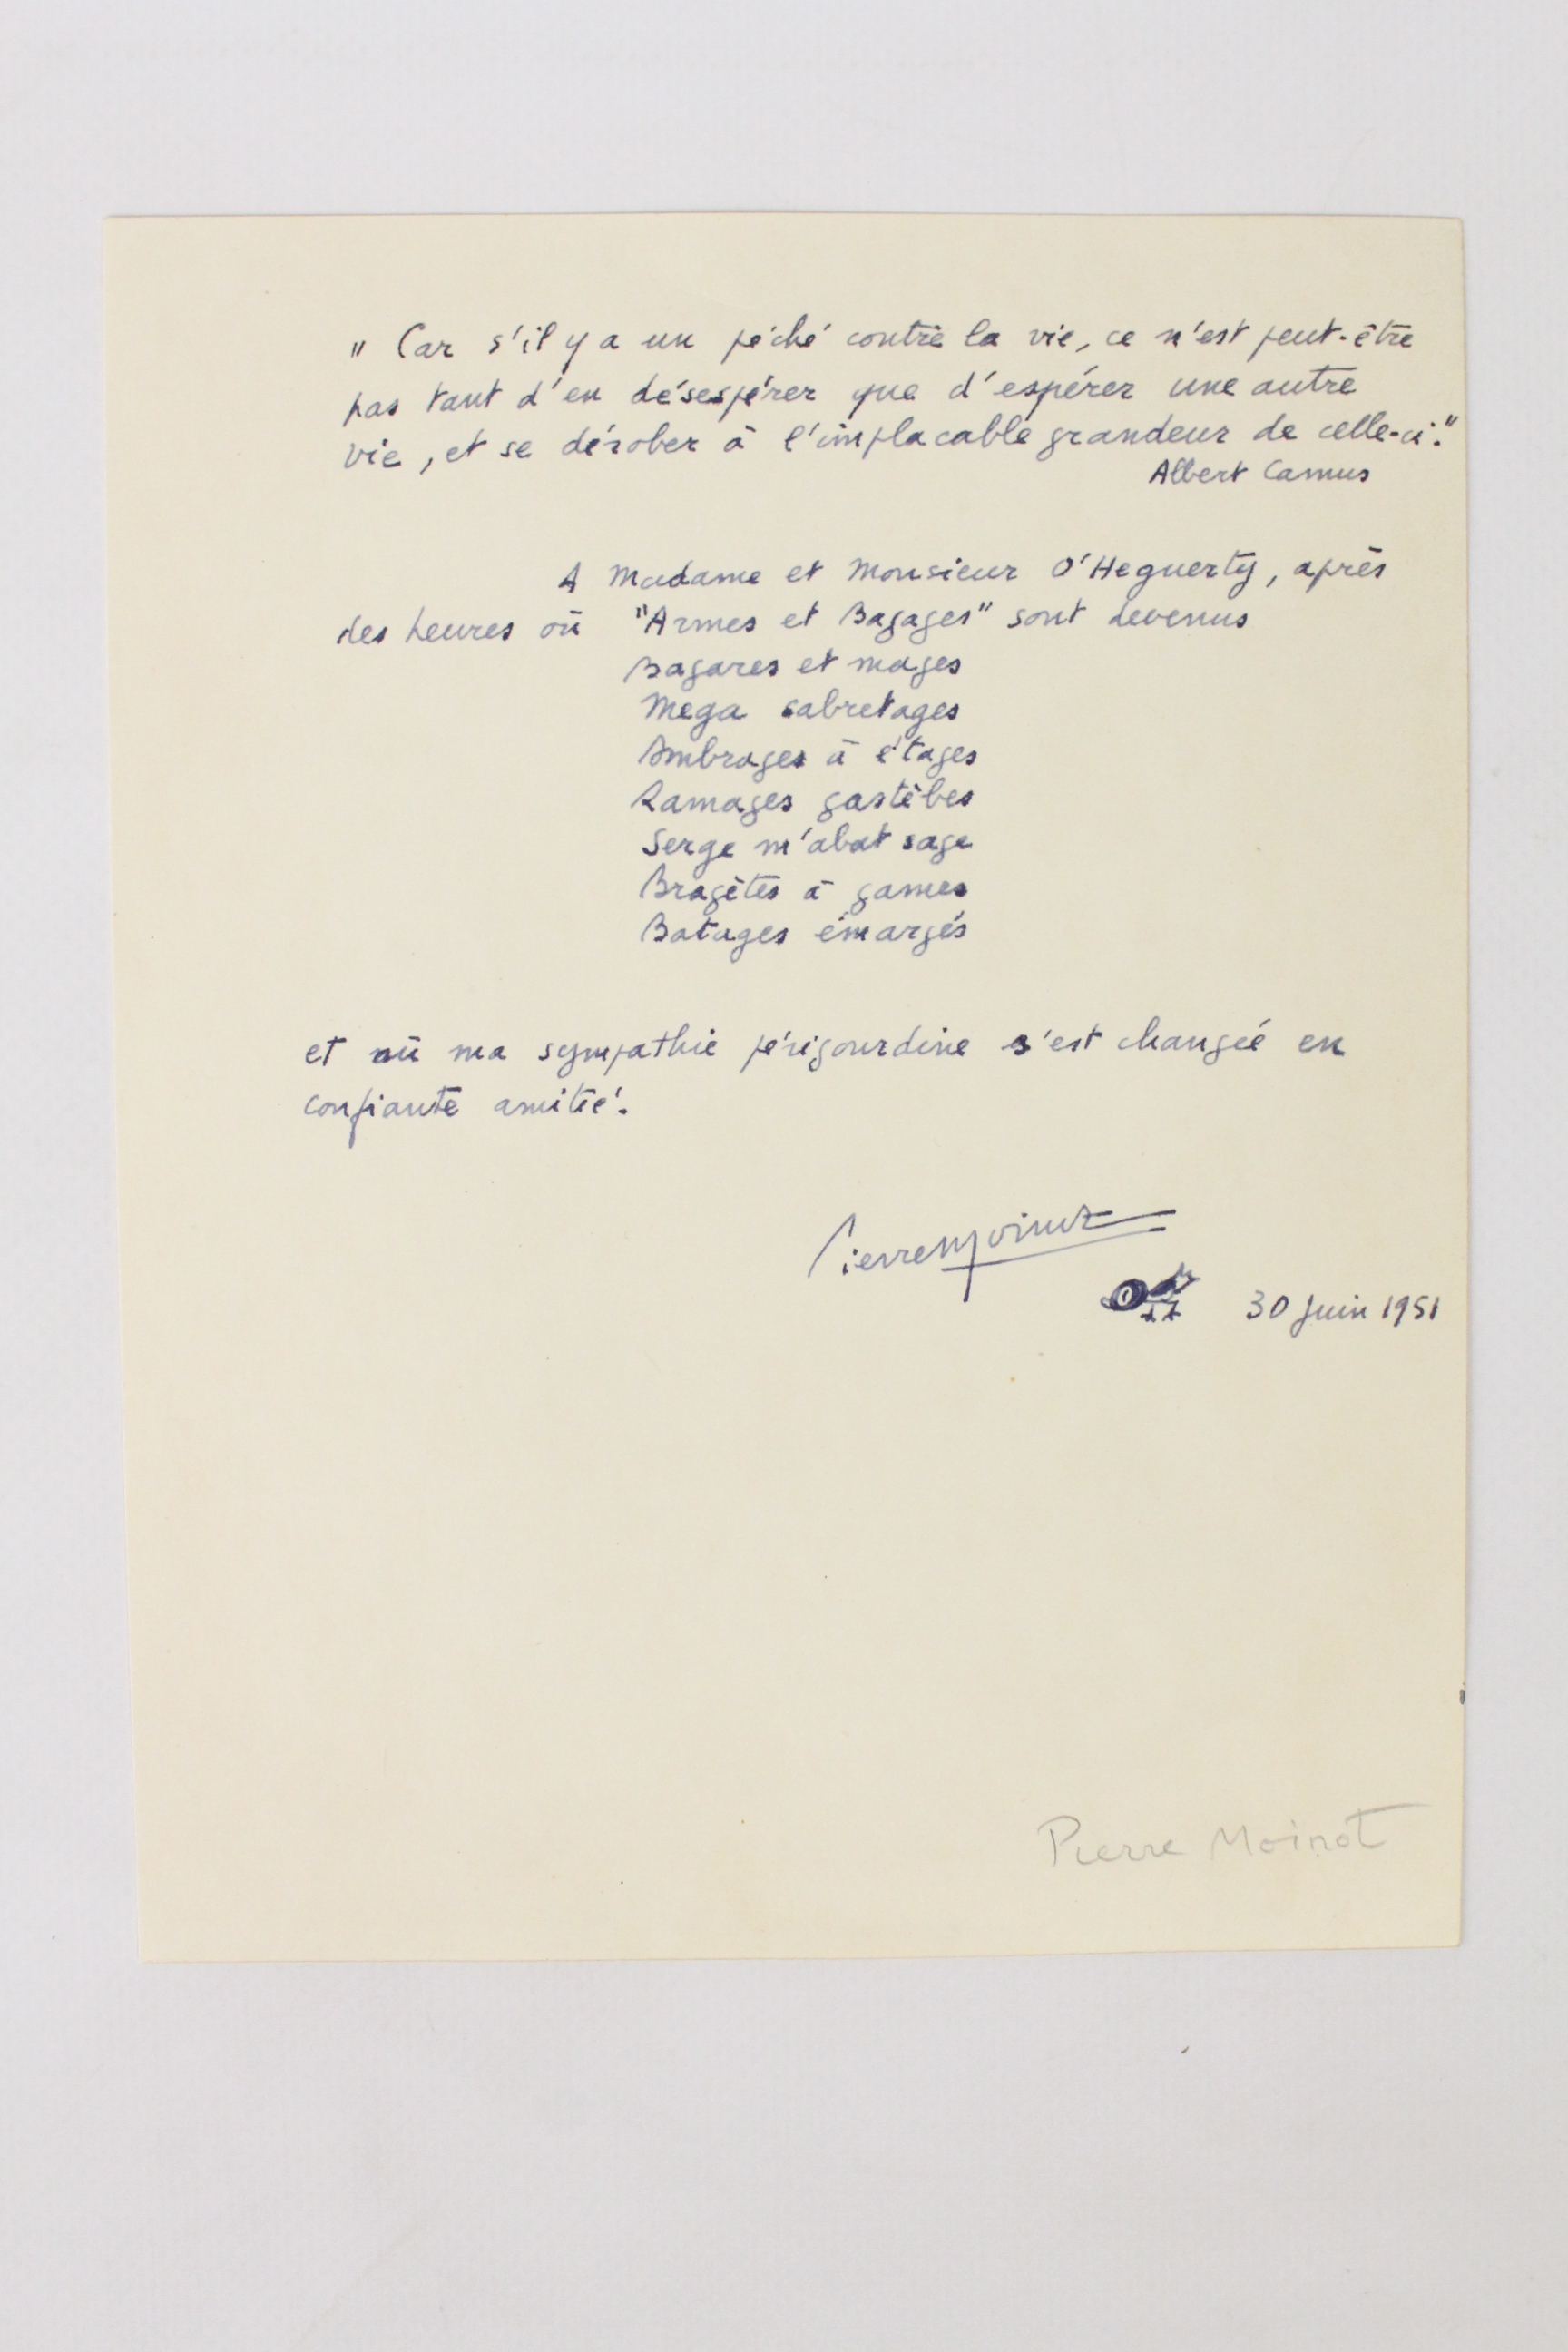 " Car s'il y a un péché contre la vie, ce n'est peut-être
pas tant d'en désespérer que d'espérer une autre
vie, et se dérober à l'implacable grandeur de celle-ci."
Albert Camus
A Madame et Monsieur O'Heguerty, après
des heures où "Armes et Bagages" sont devenus
Bagares et mages
Mega sabretages
Ambrages à étages
Ramages gastèbes
Serge m'abat sage
Bragètes à games
Batages émargés
et où ma sympathie périgourdine s'est changée en
confiante amitié.
Pierre Moinot
30 Juin 1951
Pierre Moinot